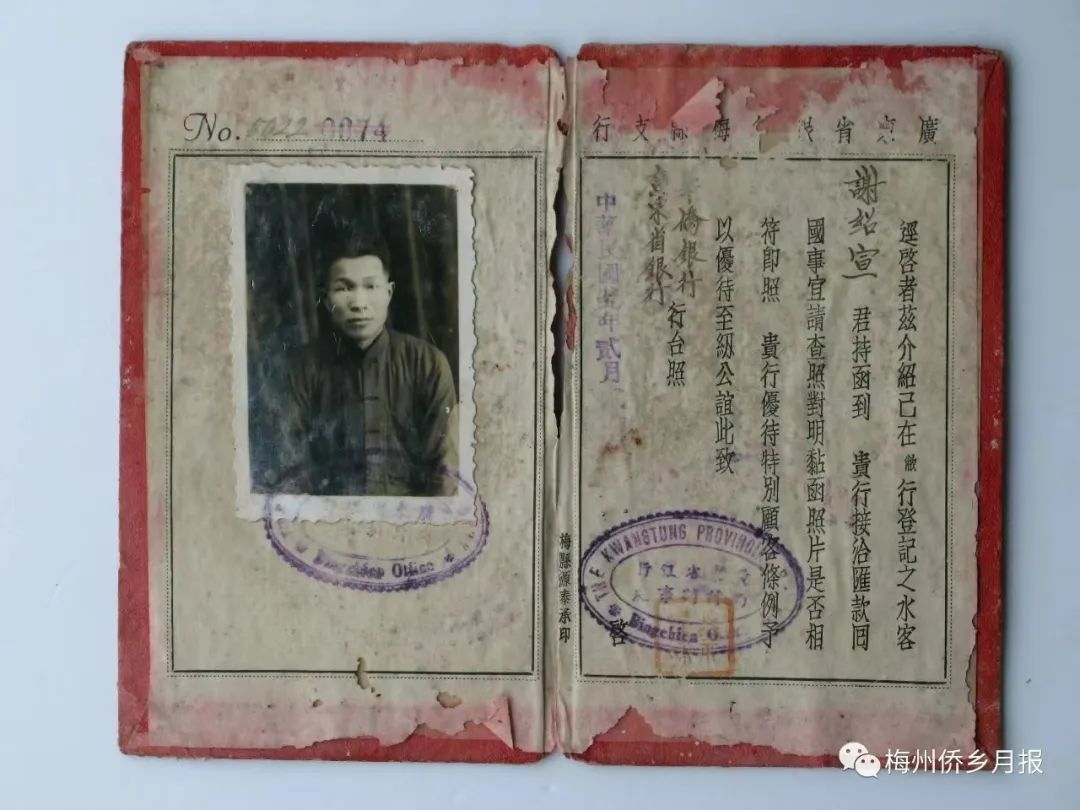 No. 5022 0074
廣東省銀行梅縣支行
逕啓者茲介紹已在敝行登記之水客
謝紹宣 君持函到 貴行接洽匯款回
國事宜請查照對明黏函照片是否相
符即照 貴行優待特別顧客條例予
以優待至紉公誼此致
華僑銀行
廣東省銀行
行台照
中華民國 年 月
啓
梅縣源泰承印
THE KWANGTUNG PROVINCIAL
Bingchien O
Bingchien Office
梅州侨乡月报